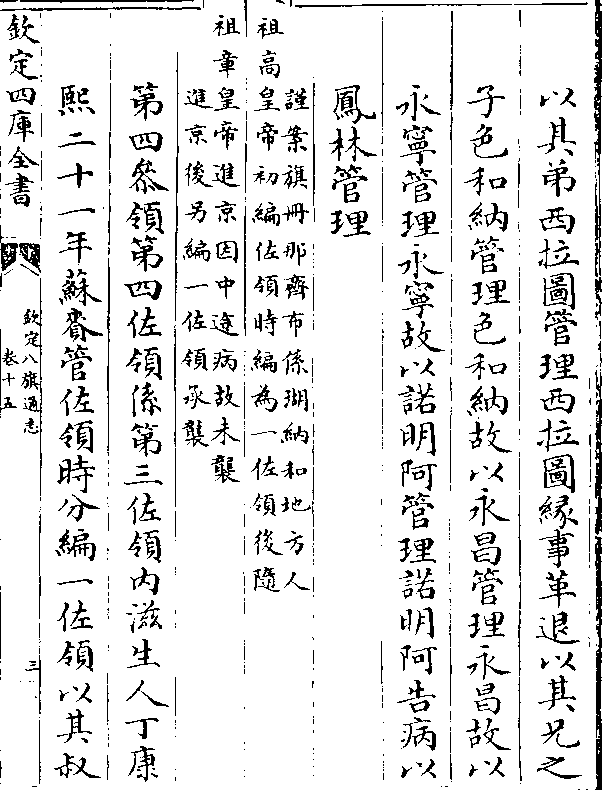 以其弟西拉圖管理西拉圖緣事革退以其兄之
子色和納管理色和納故以永昌管理永昌故以
永寧管理永寧故以諾明阿管理諾明阿告病以
鳳林管理
謹案旗冊那齊布係瑚納和地方人
祖高皇帝初編佐領時編為一佐領後隨
祖章皇帝進京因中途病故未襲
進京後另編一佐領承襲
第四叅領第四佐領係第三佐領内滋生人丁康
熙二十一年蘇賚管佐領時分編一佐領以其叔
欽定四庫全書
欽定八旗通志
卷十五
三